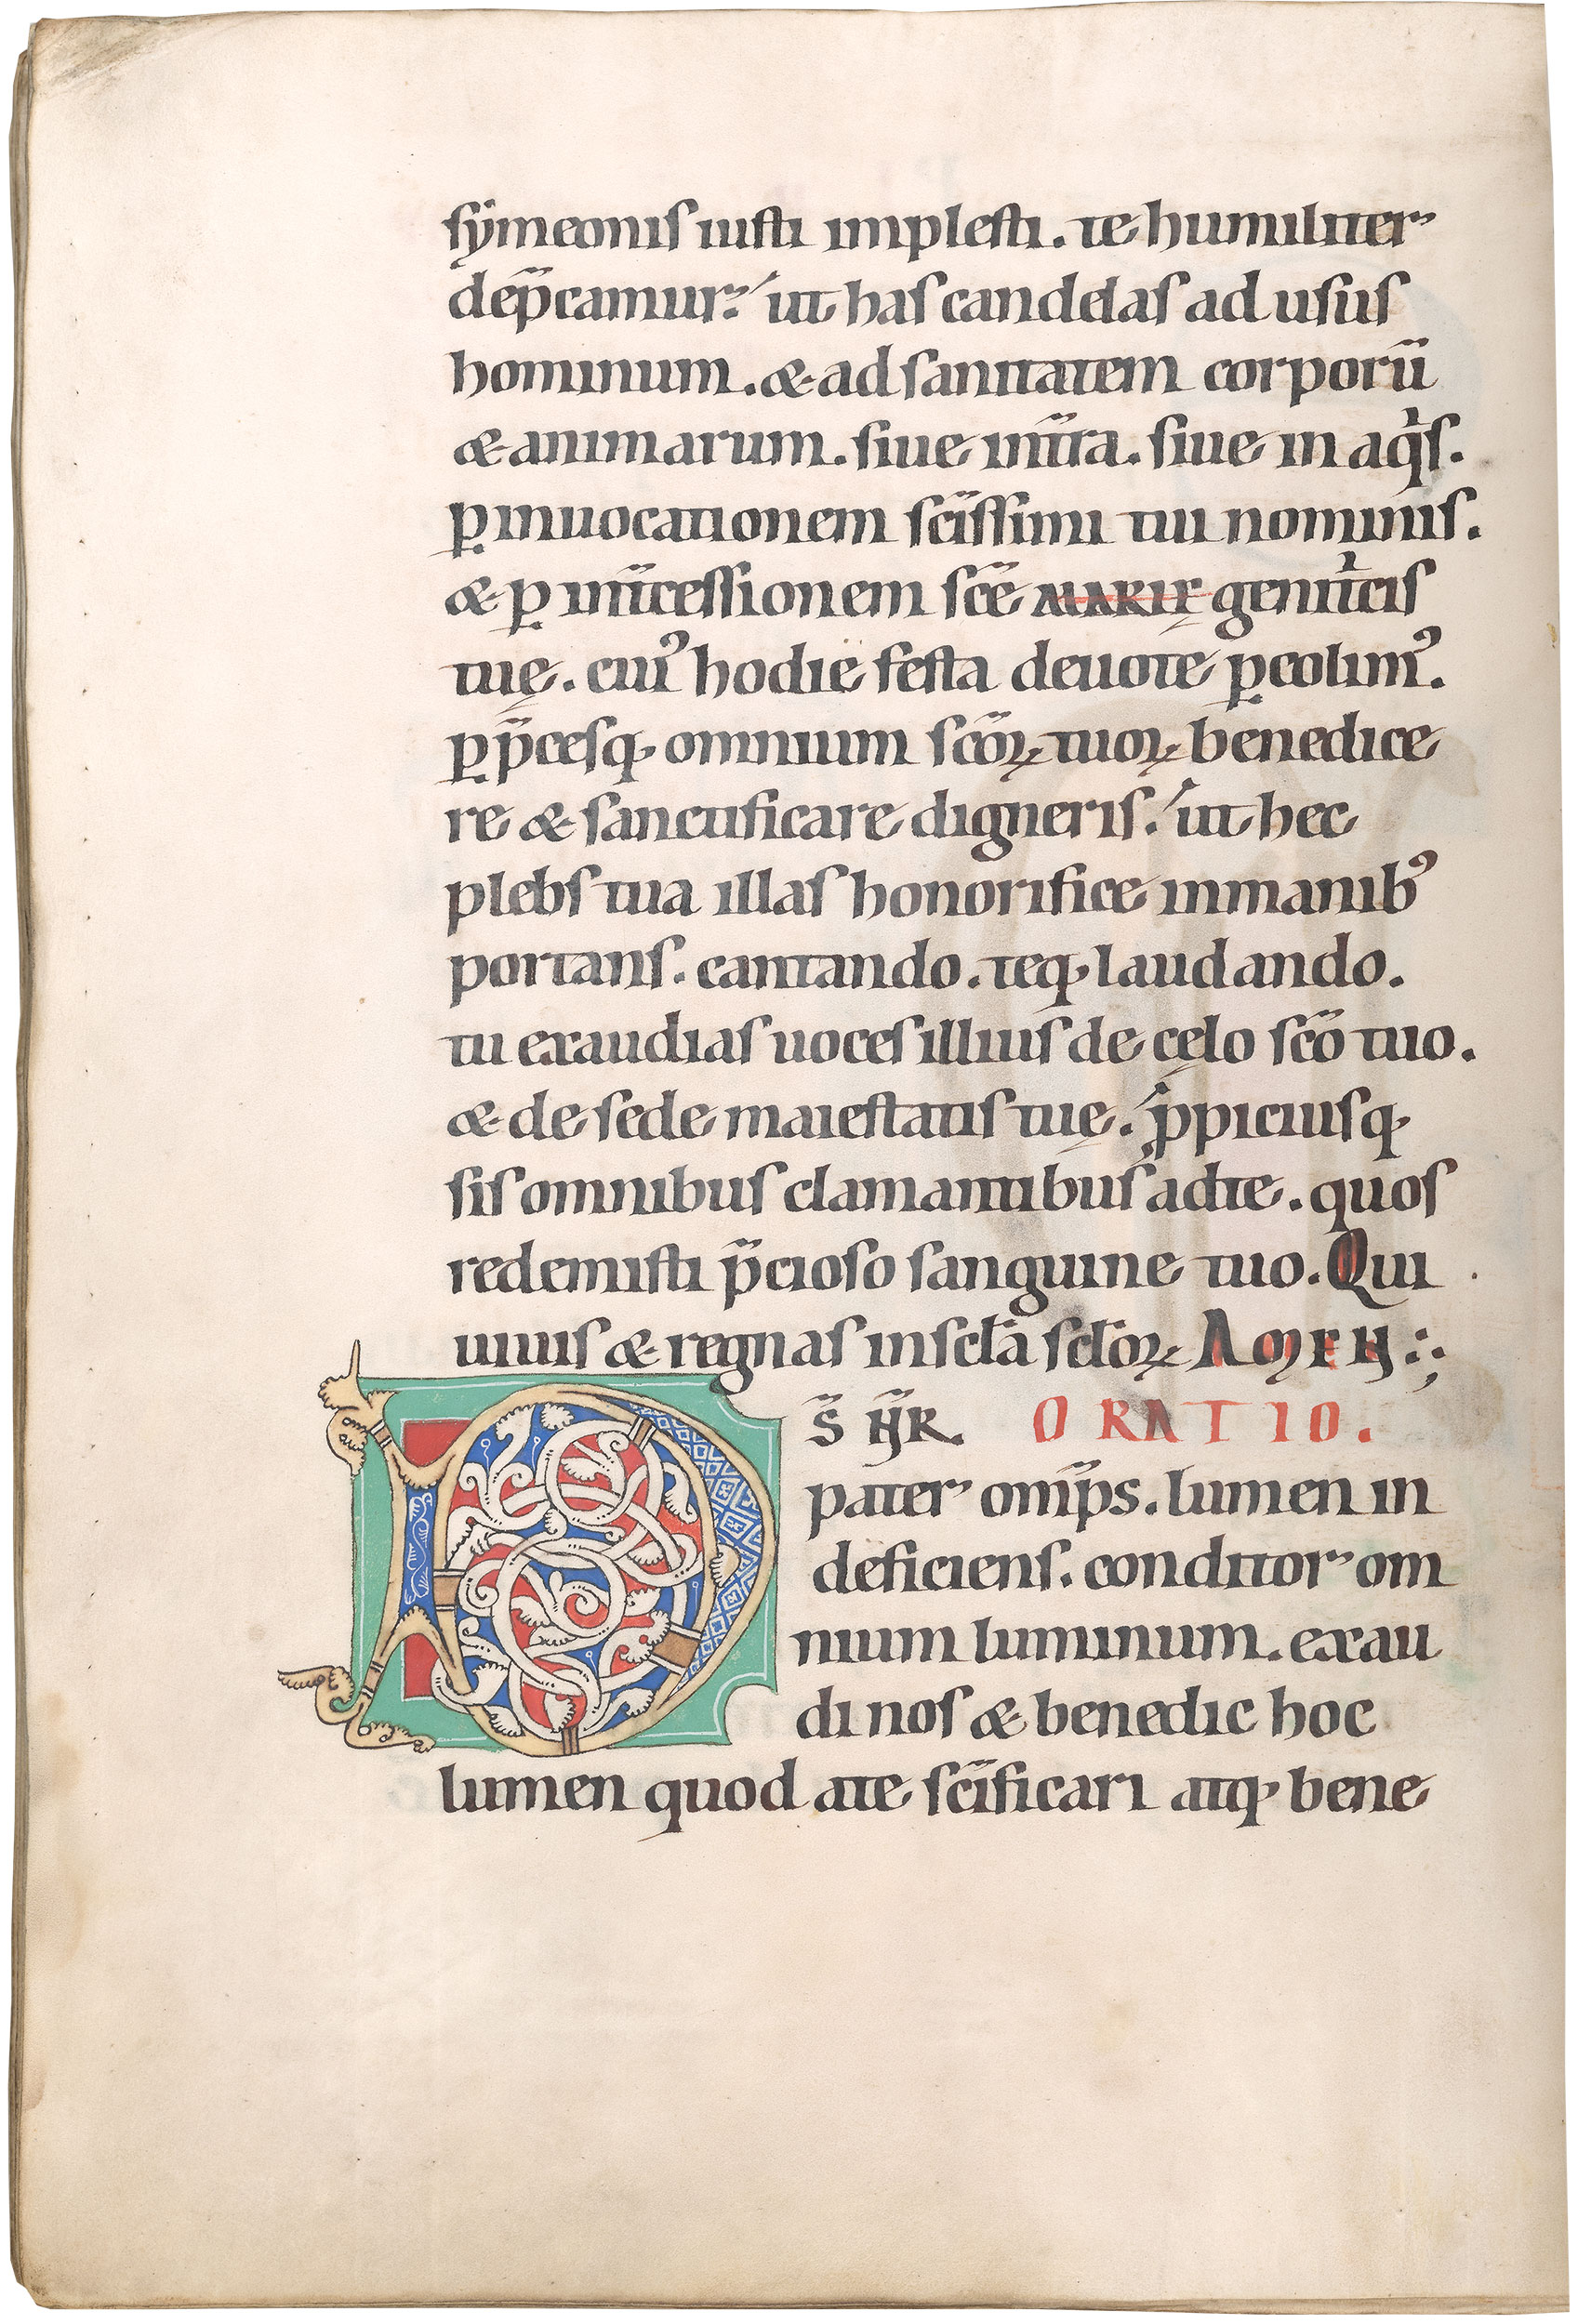 symeonis iusti implesti. te humiliter
dep̄camur. ut has candelas ad usus
hominum. & ad sanitatem corporū
& animarum. siue int̄ra. siue in aqͥs.
ꝑ inuocationem sc̄issimi tui nominis.
& ꝑ int̄cessionem sc̄e MARIE genitͥcis
tuę. cuiꝰ hodie festa deuote ꝑcolimꝰ.
ꝑ p̄cesq; omnium sc̄oꝝ tuoꝝ benedice
re & sanctificare digneris. ut hec
plebs tua illas honorifice inmanibꝰ
portans. cantando. teq; laudando.
tu exaudias uoces illius de cęlo sc̄o tuo.
& de sede maiestatis tuę. ꝓpiciusq;
sis omnibus clamantibus adte. quos
redemisti p̄cioso sanguine tuo. Qui
uiuis & regnas in scl̄a scl̄oꝝ AMEN
D S̄ N̄R. ORATIO.
pater om̄ps. lumen in
deficiens. conditor om
nium luminum. exau
di nos & benedic hoc
lumen quod ate sc̄ificari atq; bene